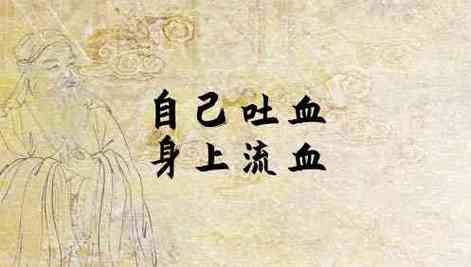 自己吐血
身上流血